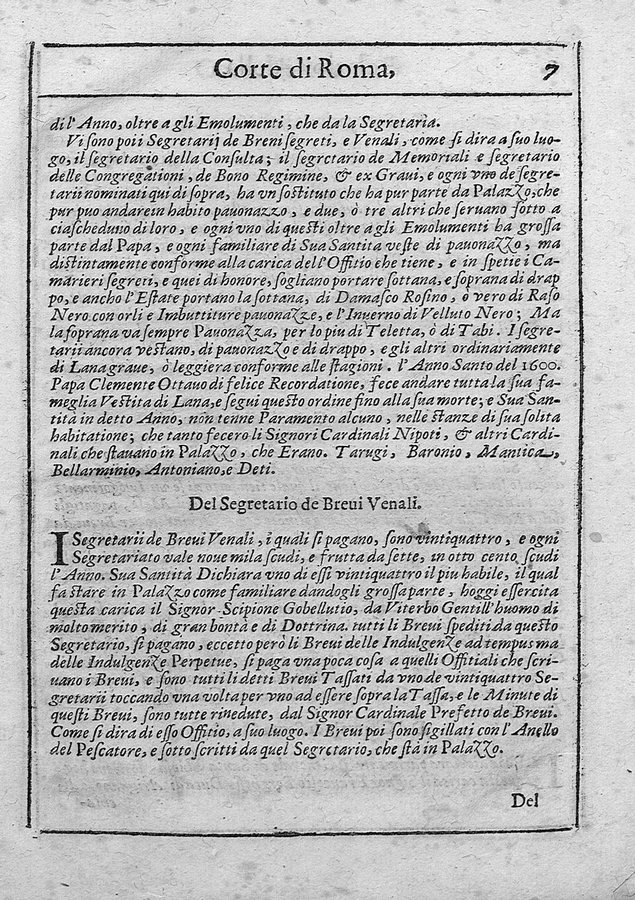 Corte di Roma, 7
di l'Anno, oltre a gli Emolumenti, che da la Segretaria.
Vi sono poi i Segretarij de Breni segreti, e Venali, come si dira a suo luo-
go, il segretario della Consulta; il segretario de Memoriali e segretario
delle Congregationi, de Bono Regimine, & ex Graui, e ogni vno de segre-
tarii nominati qui di sopra, ha vn sostituto che ha pur parte da Palazzo, che
pur puo andare in habito pauonazzo, e due, ò tre altri che seruano sotto a
ciascheduno di loro, e ogni vno di questi oltre a gli Emolumenti ha grossa
parte dal Papa, e ogni familiare di Sua Santita veste di pauonazzo, ma
distintamente conforme alla carica dell'Offitio che tiene, e in spetie i Ca-
marieri segreti, e quei di honore, sogliano portare sottana, e soprana di drap
po, e ancho l'Estate portano la sottana, di Damasco Rosino, ò vero di Raso
Nero con orli e Imbuttiture pauonazze, e l'Inuerno di Velluto Nero; Ma
la soprana va sempre Pauonazza, per lo piu di Teletta, ò di Tabi. I segre-
tarii ancora vestano, di pauonazzo e di drappo, e gli altri ordinariamente
di Lana graue, ò leggiera conforme alle stagioni. l'Anno Santo del 1600.
Papa Clemente Ottauo di felice Recordatione, fece andare tutta la sua fa-
meglia Vestita di Lana, e segui questo ordine fino alla sua morte; e Sua San-
tità in detto Anno, non tenne Paramento alcuno, nelle stanze di sua solita
habitatione; che tanto fecero li Signori Cardinali Nipoti, & altri Cardi-
nali che stauano in Palazzo, che Erano. Tarugi, Baronio, Mantica,
Bellarminio, Antoniano, e Deti.
Del Segretario de Breui Venali.
I Segretarii de Breui Venali, i quali si pagano, sono vintiquattro, e ogni
Segretariato vale noue mila scudi, e frutta da sette, in otto cento scudi
l'Anno. Sua Santità Dichiara vno di essi vintiquattro il piu habile, il qual
fa stare in Palazzo come familiare dandogli grossa parte, hoggi essercita
questa carica il Signor Scipione Gobellutio, da Viterbo Gentill'huomo di
molto merito, di gran bontà e di Dottrina. tutti li Breui spediti da questo
Segretario, si pagano, eccetto però li Breui delle Indulgenze ad tempus ma
delle Indulgenze Perpetue, si paga vna poca cosa a quelli Offitiali che scri-
uano i Breui, e sono tutti li detti Breui Tassati da vno de vintiquattro Se-
gretarii toccando vna volta per vno ad essere sopra la Tassa, e le Minute di
questi Breui, sono tutte riuedute, dal Signor Cardinale Prefetto de Breui.
Come si dira di esso Offitio, a suo luogo. I Breui poi sono sigillati con l'Anello
del Pescatore, e sotto scritti da quel Segretario, che stà in Palazzo.
Del